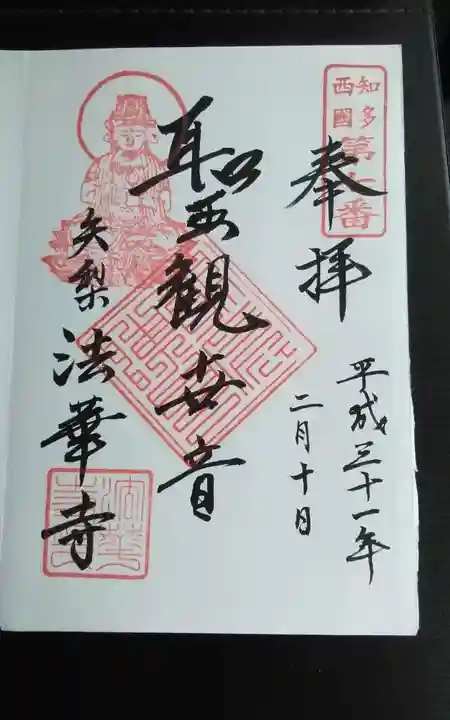 知多
西國
第番
奉拝
平成三十一年
二月十日
聖観世音
矢梨 法華寺